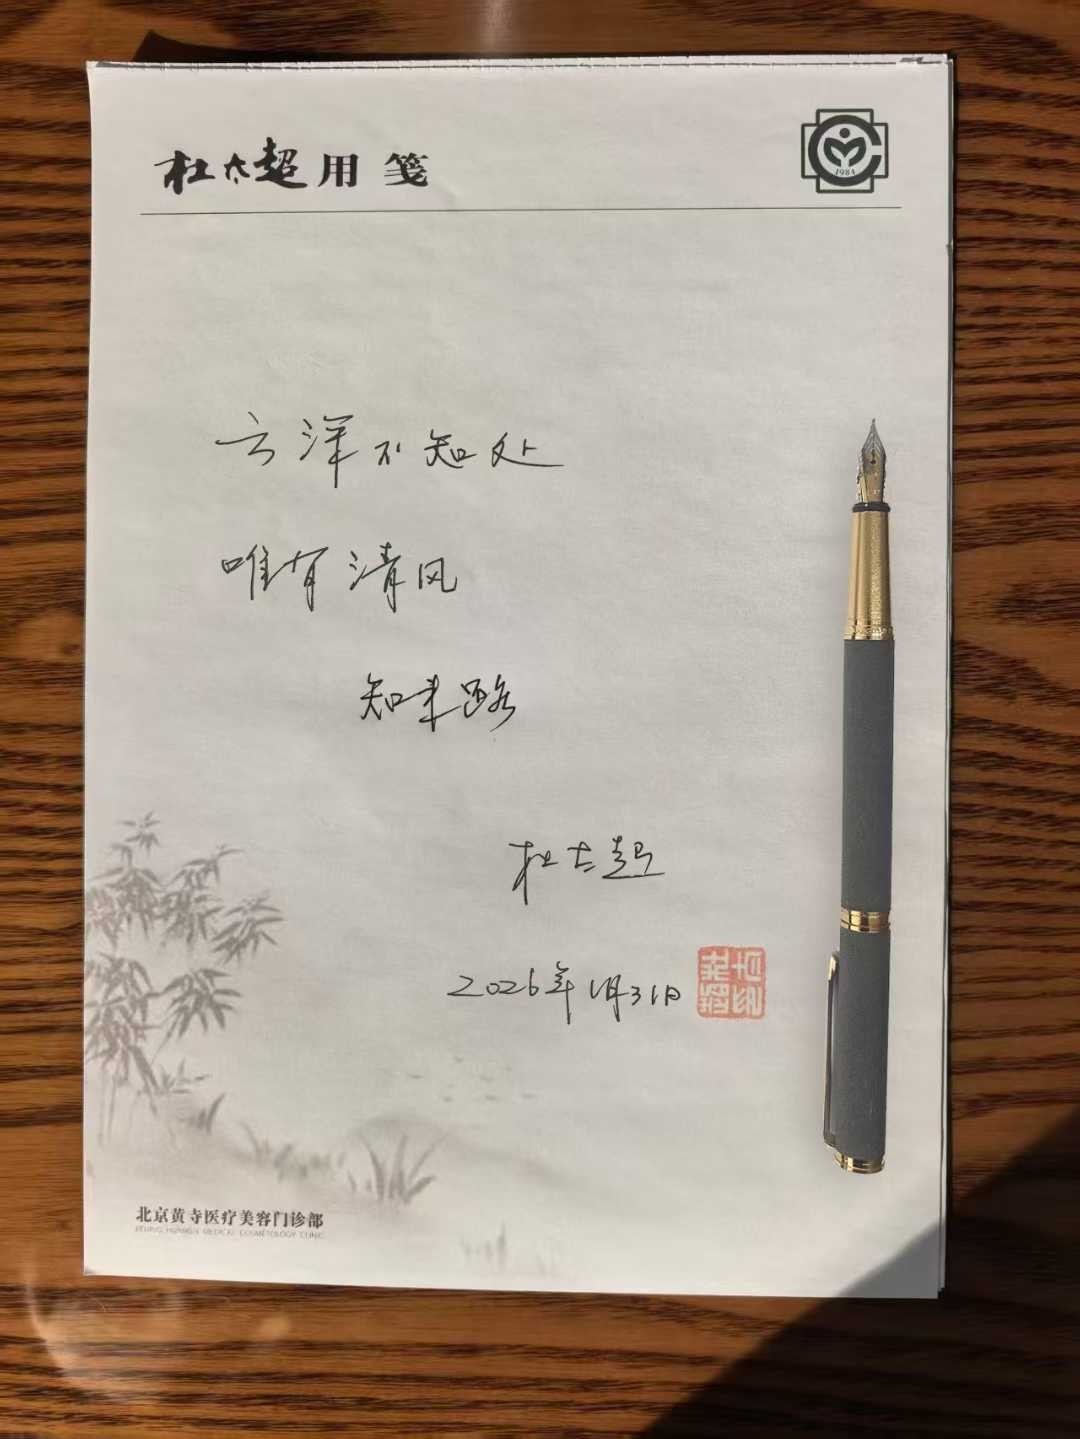 杜太超用笺
1984
云深不知处
唯有清风
知来路
杜太超
2026年1月31日
北京黄寺医疗美容门诊部
BEIJING HUANGSI MEDICAL COSMETOLOGY CLINIC